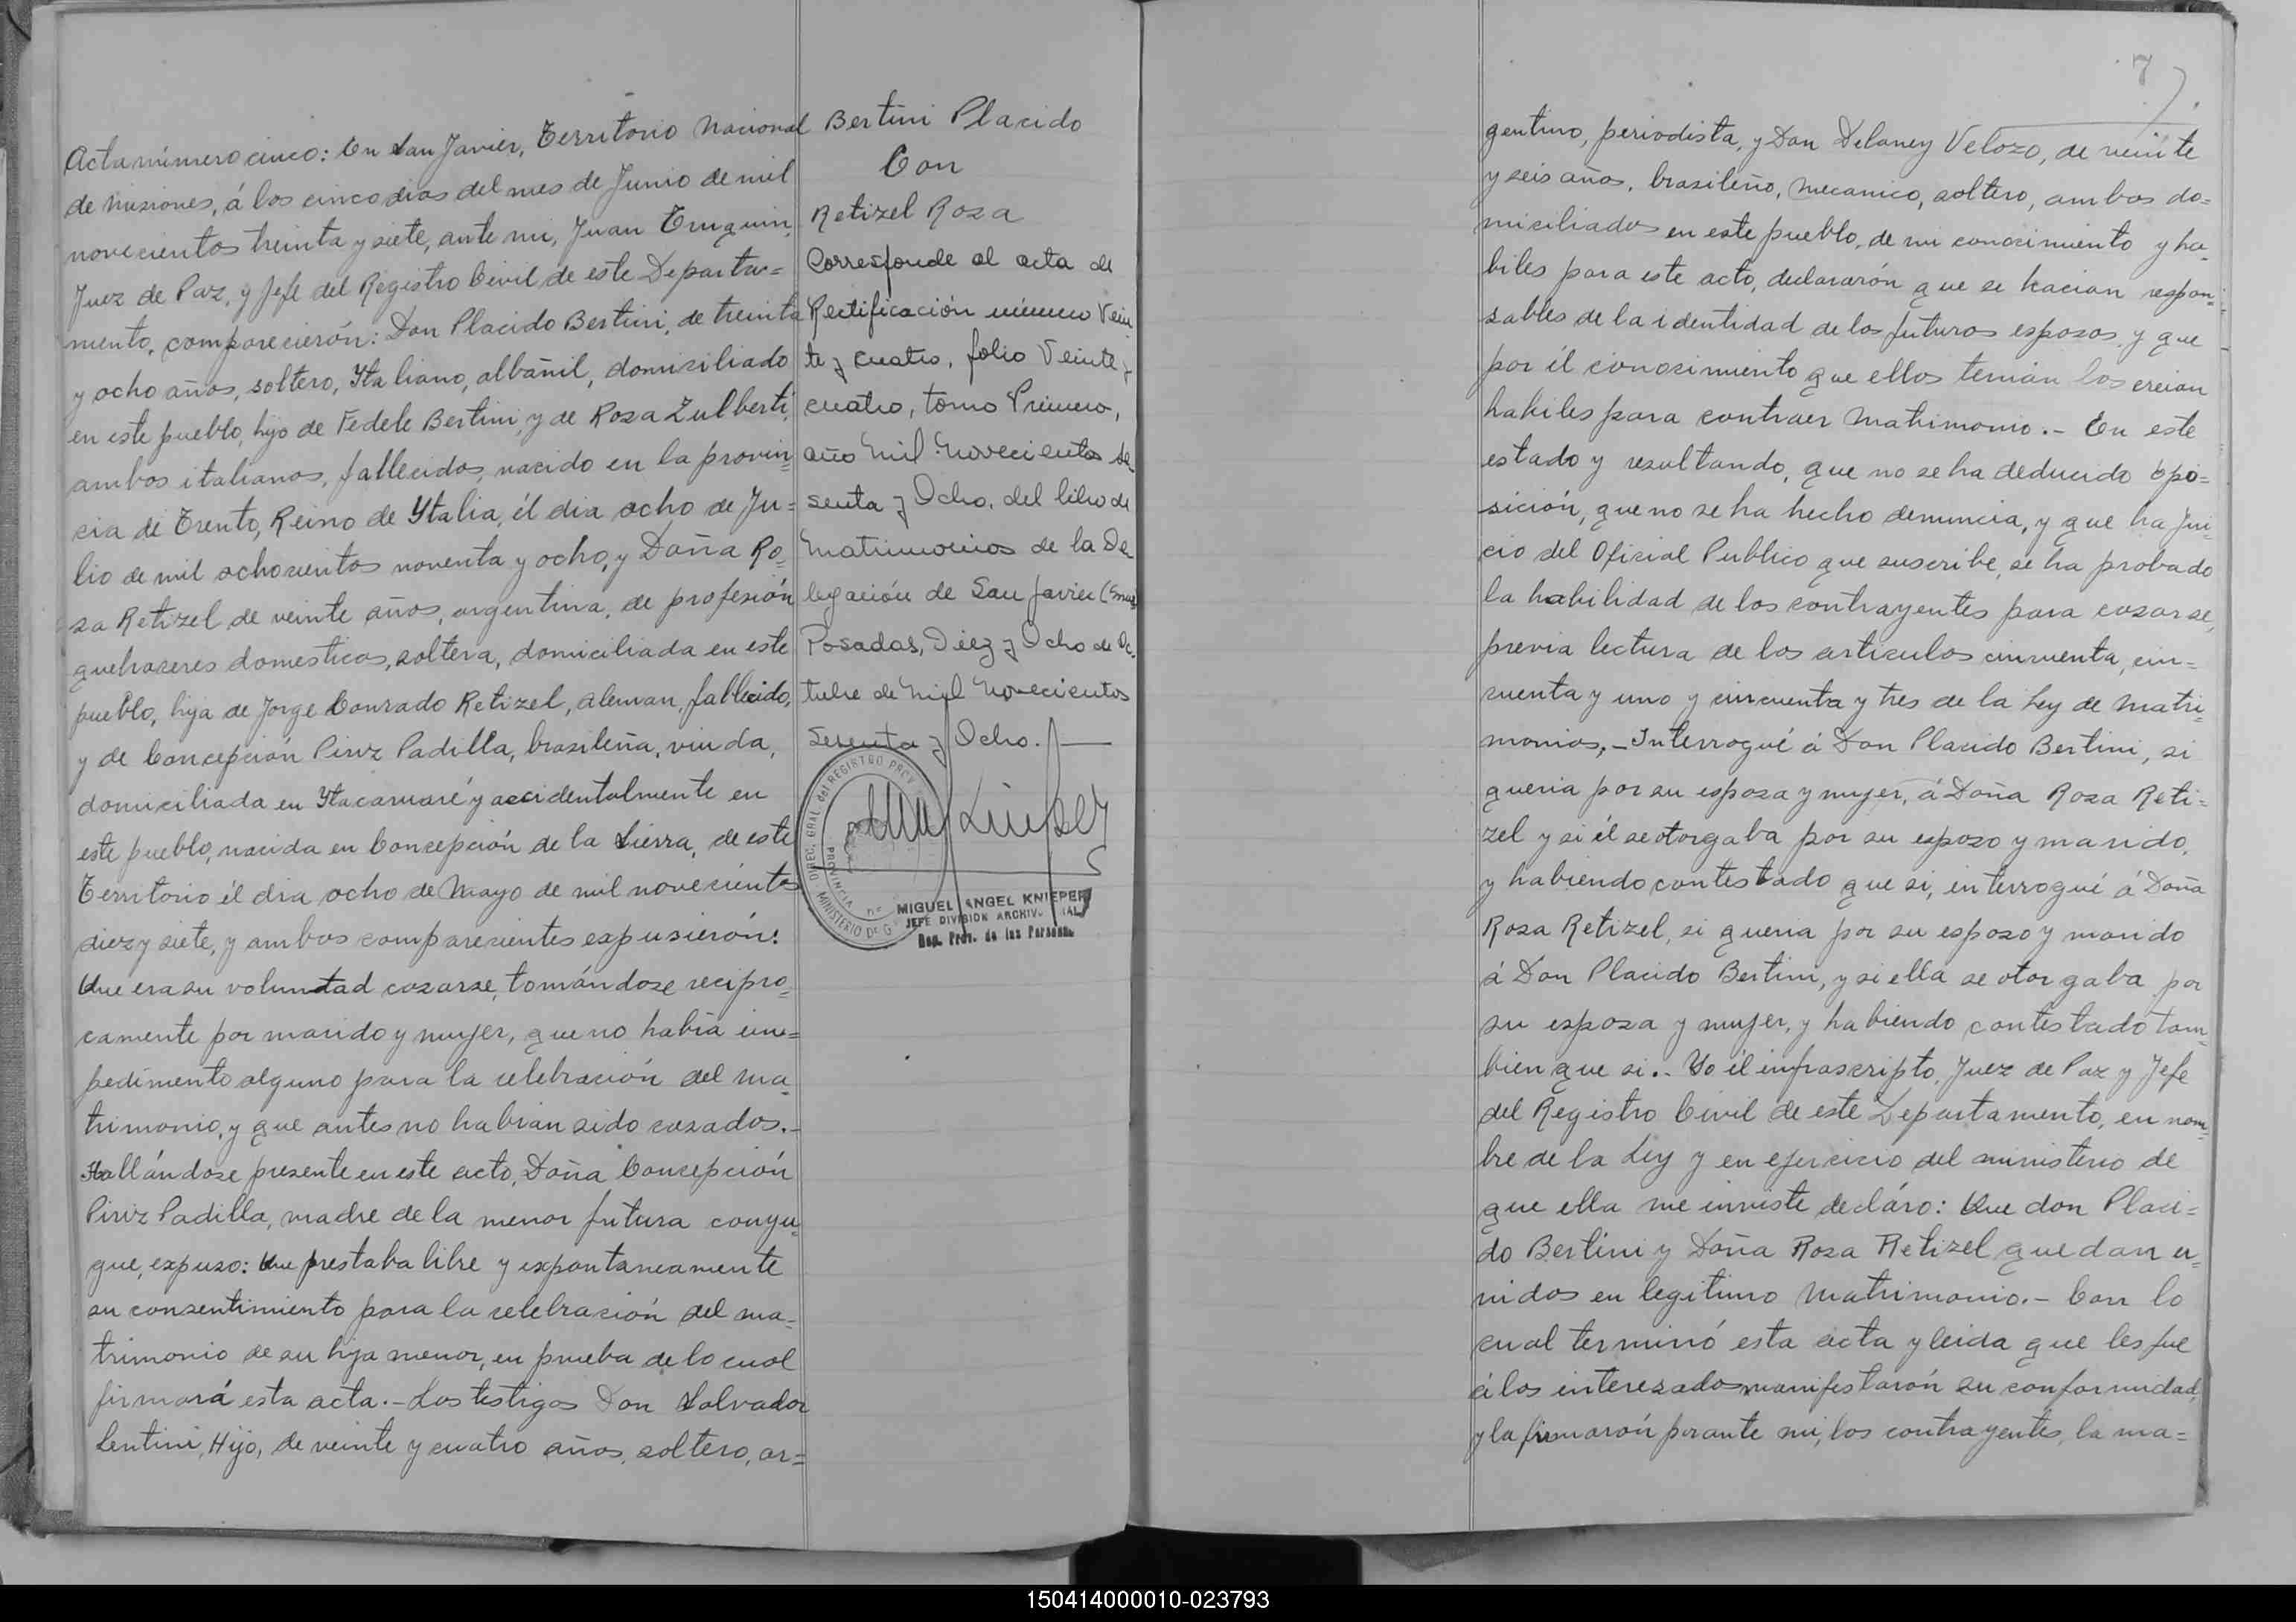 Acta número cinco: En San Javier, Territorio Nacional
de Misiones, á los cinco dias del mes de Junio de mil
novecientos treinta y siete, ante mi, Juan Truquin,
Juez de Paz, y Jefe del Registro Civil de este Departa=
mento, comparecierón: Don Placido Bertini, de treinta
y ocho años, soltero, Ytaliano, albañil, domiciliado
en este pueblo, hijo de Fedele Bertini, y de Rosa Zulberti,
ambos italianos, fallecidos, nacido en la provin=
cia de Trento, Reino de Ytalia, él dia ocho de Ju=
lio de mil ochocientos noventa y ocho, y Doña Ro=
sa Retizel de veinte años, argentina, de profesión
quehaseres domesticos, soltera, domiciliada en este
pueblo, hija de Jorge Conrado Retizel, aleman, fallecido,
y de Concepción Piriz Padilla, brasileña, viuda,
domiciliada en Ytacaruaré y accidentalmente en
este pueblo, nacida en Concepción de la Sierra, de este
Territorio él dia ocho de Mayo de mil novecientos
diez y siete, y ambos comparecientes expusierón:
Que era su voluntad casarse, tomándose recipro=
camente por marido y mujer, que no había im=
pedimento alguno para la celebración del ma=
trimonio, y que antes no habian sido casados.-
Hallándose presente en este acto, Doña Concepción
Piriz Padilla, madre de la menor futura conyu=
gue, expuso: Que prestaba libre y expontaneamente
su consentimiento para la celebración del ma=
trimonio de su hija menor, en prueba de lo cual
firmará esta acta.- Los testigos Don Salvador
Lentini, Hijo, de veinte y cuatro años, soltero, ar=
Bertini Placido
Con
Retizel Rosa
Corresponde al acta de
Rectificación número Vein
te y cuatro, folio Veinte y
cuatro, tomo Primero,
año Mil Novecientos Se
senta y Ocho, del libro de
Matrimonios de la De
legación de San Javier
Posadas, Diez y Ocho de Oc
tubre de Mil Novecientos
Sesenta y Ocho.
DIREC. GRAL. del REGISTRO PROV.
PROVINCIA
MINISTERIO DE G
MIGUEL ANGEL KNIEPER
JEFE DIVISION ARCHIVO GRAL
Reg. Prov. de las Personas
7
gentino, periodista, y Don Delaney Velozo, de veinte
y seis años, brasileño, mecanico, soltero, ambos do=
miciliados en este pueblo, de mi conocimiento y ha=
biles para este acto, declararón que se hacian respon=
sables de la identidad de los futuros esposos, y que
por él conosimiento que ellos tenían los creían
habiles para contraer matrimonio.- En este
estado y resultando, que no se ha deducido opo=
sición, que no se ha hecho denuncia, y que ha jui=
cio del Oficial Publico que suscribe, se ha probado
la habilidad de los contrayentes para casarse,
previa lectura de los articulos cincuenta, cin=
cuenta y uno y cincuenta y tres de la Ley de Matri=
monios,- Interrogué á Don Placido Bertini, si
queria por su esposa y mujer, á Doña Rosa Reti=
zel y si él se otorgaba por su esposo y marido,
y habiendo contestado que si, interrogué á Doña
Rosa Retizel, si queria por su esposo y marido
á Don Placido Bertini, y si ella se otorgaba por
su esposa y mujer, y habiendo contestado tam=
bien que si.- Yo él infrascripto, Juez de Paz y Jefe
del Registro Civil de este Departamento, en nom=
bre de la Ley y en ejercicio del ministerio de
que ella me inviste decláro: Que don Placi=
do Bertini y Doña Rosa Retizel quedan u=
nidos en legitimo matrimonio.- Con lo
cual terminó esta acta y leida que les fue
á los interesados manifestarón su conformidad,
y la firmarón por ante mi, los contrayentes, la ma=
150414000010-023793